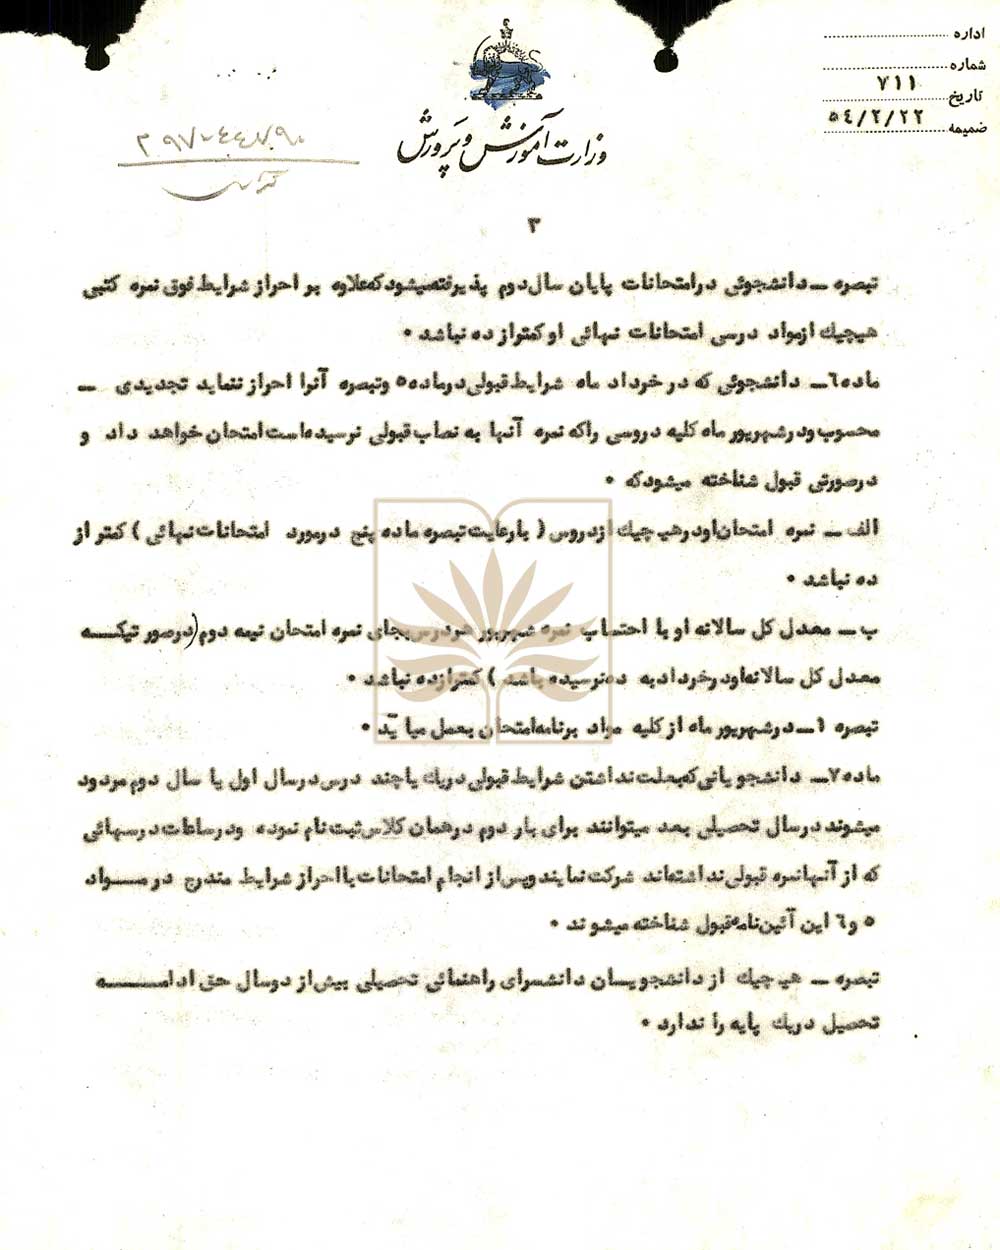 اداره
شماره
۷۱۱
تاریخ
۵٤/۲/۲۲
ضمیمه
وزارت آموزش و پرورش
۳
تبصره ــ دانشجوئی درامتحانات پایان سال دوم پذیرفته میشود که علاوه بر احراز شرایط فوق نمره کتبی
هیچیک از مواد درسی امتحانات نهائی او کمتر از ده نباشد ۰
ماده ٦ــ دانشجوئی که در خرداد ماه شرایط قبولی در ماده ۵ و تبصره آنرا احراز ننماید تجدیدی ــ
محسوب و در شهریور ماه کلیه دروسی را که نمره آنها به نصاب قبولی نرسیده است امتحان خواهد داد و
در صورتی قبول شناخته میشود که ۰
الف ــ نمره امتحان او در هیچیک از دروس ( با رعایت تبصره ماده پنج در مورد امتحانات نهائی ) کمتر از
ده نباشد ۰
ب ــ معدل کل سالانه او با احتساب نمره شهریور هر درس بجای نمره امتحان نیمه دوم (در صورتیکه
معدل کل سالانه او در خرداد به ده نرسیده باشد ) کمتر از ده نباشد ۰
تبصره ۱ ــ در شهریور ماه از کلیه مواد برنامه امتحان بعمل میآید ۰
ماده ۷ــ دانشجویانی که بعلت نداشتن شرایط قبولی در یک یا چند درس در سال اول یا سال دوم مردود
میشوند در سال تحصیلی بعد میتوانند برای بار دوم در همان کلاس ثبت نام نموده و در ساعات درسهائی
که از آنها نمره قبولی نداشته اند شرکت نمایند و پس از انجام امتحانات با احراز شرایط مندرج در مواد
۵ و ٦ این آئین نامه قبول شناخته میشوند ۰
تبصره ــ هیچیک از دانشجویان دانشسرای راهنمائی تحصیلی بیش از دو سال حق ادامه
تحصیل در یک پایه را ندارد ۰